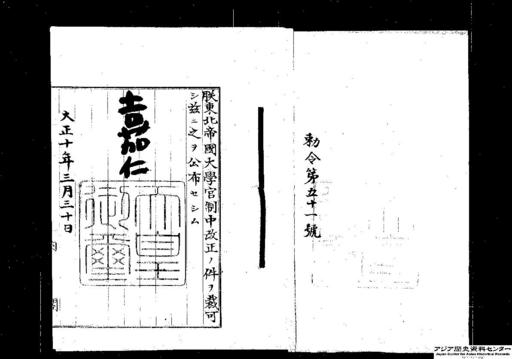 勅令第五十一號
朕東北帝國大學官制中改正ノ件ヲ裁可
シ茲ニ之ヲ公布セシム
嘉仁
大正十年三月三十日
内閣
アジア歴史資料センター
Japan Center for Asian Historical Records